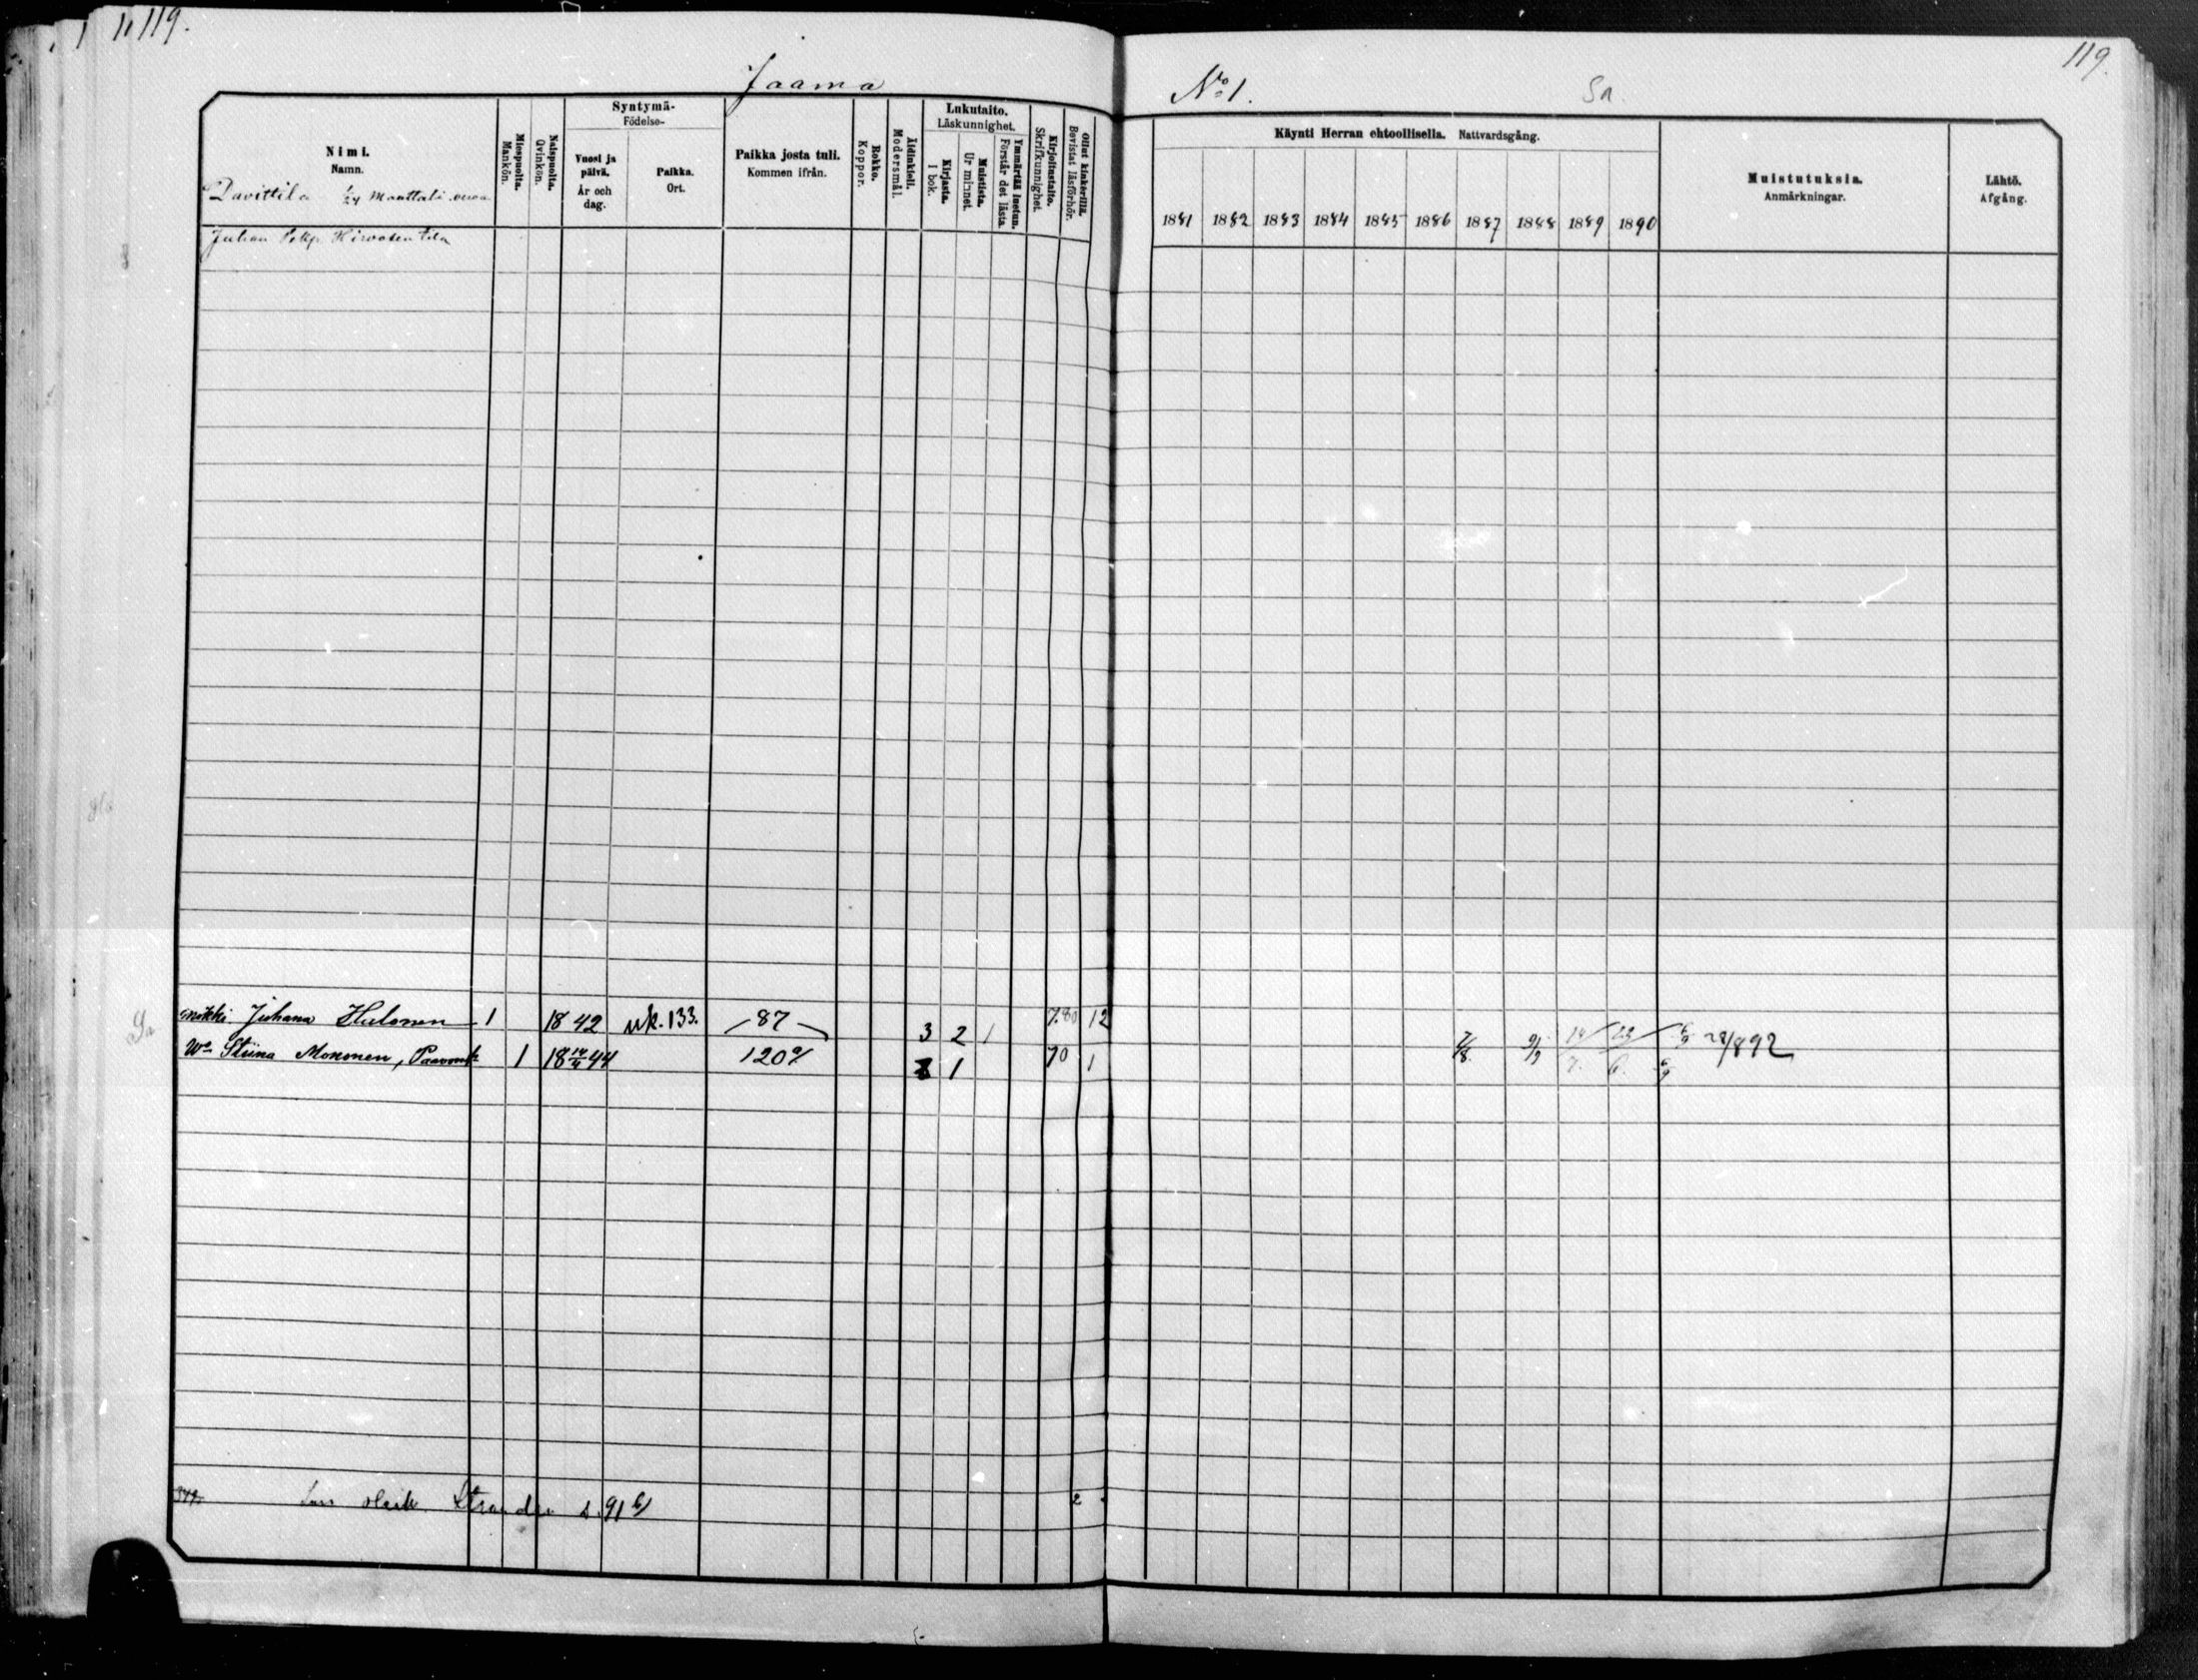 119.
Jaama
Nimi.
Namn.
Miespuolta.
Mankön.
Naispuolta.
Qvinkön.
Syntymä-
Födelse-
Vuosi ja
päivä.
År och
dag.
Paikka.
Ort.
Paikka josta tuli.
Kommen ifrån.
Rokko.
Koppor.
Äidinkieli.
Modersmål.
Lukutaito.
Läskunnighet.
Kirjasta.
I bok.
Muistista.
Ur minnet
Ymmärtää luetun.
Förstår det lästa
Kirjoitustaito.
Skrifkunnighet
Ollut kinkerillä.
Bevistat läsförhör.
Davittila 1/24 Manttali
Juhan Hirvosen tila
Juhana Halonen 1 1842 87 3 2 1 7.80 12
Stiina Mononen, 1 18 44 120 1 70 1
s. 91
2
No 1.
119.
Käynti Herran ehtoollisella. Nattvardsgång.
1881 1882 1883 1884 1885 1886 1887 1888 1889 1890
Muistutuksia.
Anmärkningar.
Lähtö.
Afgång.